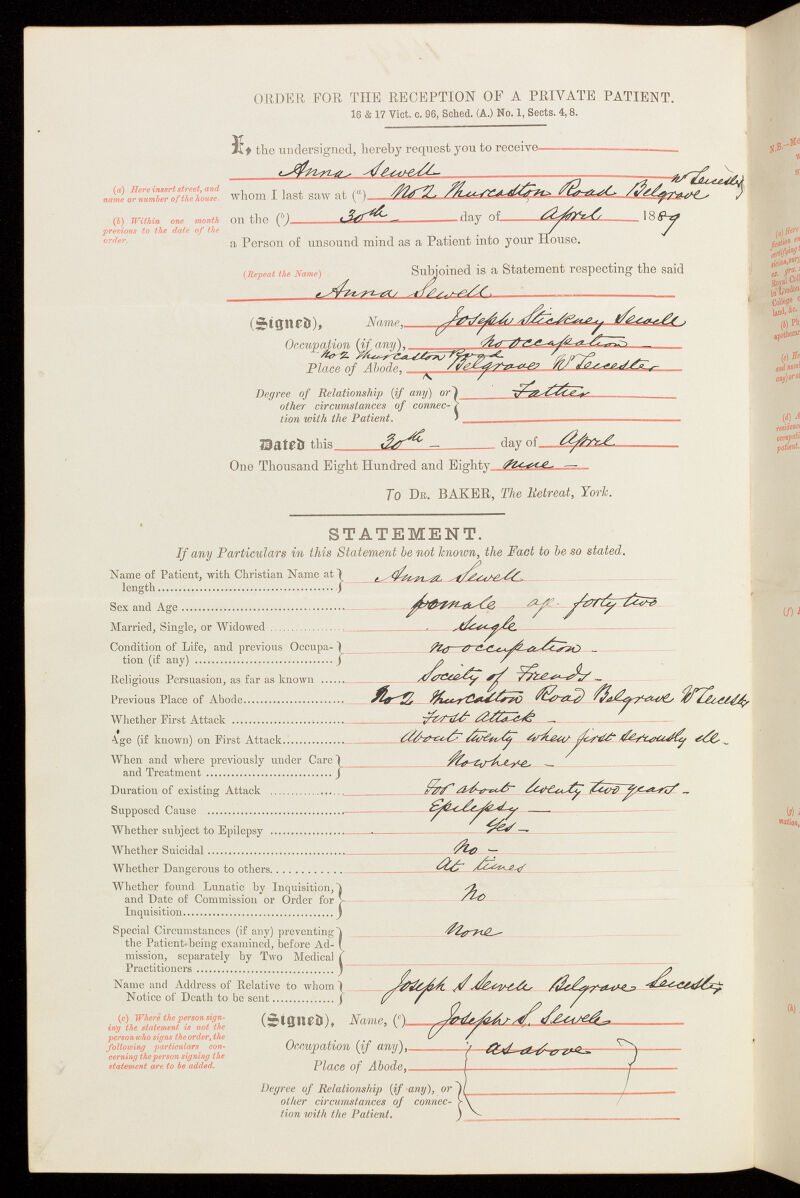 ORDER FOR THE RECEPTION OF A PRIVATE PATIENT.
16 & 17 Vict. c. 96, Sched. (A.) No. 1, Sects. 4, 8.
I, the undersigned, hereby request you to receive
Anna Sewell
(a) Here insert street, and name or number of the house.
whom I last saw at (a) No 2 Thurcaston Road Belgrave Nr Leicester
(b) Within one month previous to the date of the order.
on the (b) 30th day of April 1889
a Person of unsound mind as a Patient into your House.
(Repeat the Name) Subjoined is a Statement respecting the said
Anna Sewell
(Signed), Name, Joseph Stickney Sewell
Occupation (if any), No occupation
No 2 Thurcaston Road
Place of Abode, Belgrave Nr Leicester
Degree of Relationship (if any) or
other circumstances of connec-
tion with the Patient.
Father
Dated this 30th day of April
One Thousand Eight Hundred and Eighty nine
To DR. BAKER, The Retreat, York.
STATEMENT.
If any Particulars in this Statement be not known, the Fact to be so stated.
Name of Patient, with Christian Name at
length
Anna Sewell
Sex and Age female ag. forty two
Married, Single, or Widowed Single
Condition of Life, and previous Occupa-
tion (if any)
No occupation
Religious Persuasion, as far as known Society of Friends
Previous Place of Abode No 2 Thurcaston Road Belgrave Nr Leicester
Whether First Attack First Attack
Age (if known) on First Attack About twenty when first seriously ill
When and where previously under Care
and Treatment
Nowhere
Duration of existing Attack For about twenty two years
Supposed Cause Epilepsy
Whether subject to Epilepsy Yes
Whether Suicidal No
Whether Dangerous to others At times
Whether found Lunatic by Inquisition,
and Date of Commission or Order for
Inquisition
No
Special Circumstances (if any) preventing
the Patient being examined, before Ad-
mission, separately by Two Medical
Practitioners
None
Name and Address of Relative to whom
Notice of Death to be sent
Joseph S Sewell Belgrave Leicester
(c) Where the person sign-
ing the statement is not the
person who signs the order, the
following particulars con-
cerning the person signing the
statement are to be added.
(Signed), Name, (c) Joseph S. Sewell
Occupation (if any), as above
Place of Abode,
Degree of Relationship (if any), or
other circumstances of connec-
tion with the Patient.